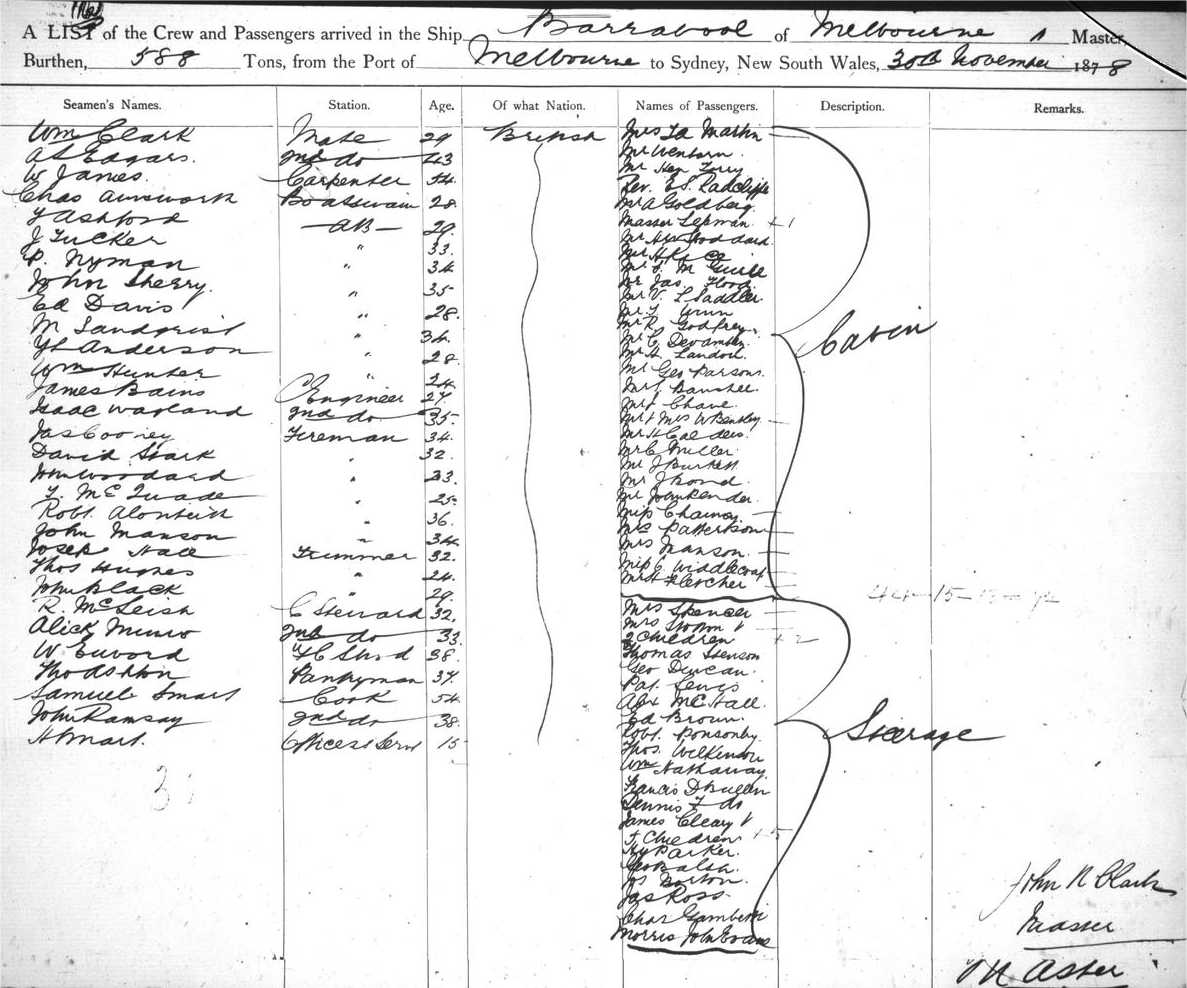 A LIST of the Crew and Passengers arrived in the Ship Barrabool of Melbourne Master,
Burthen, 588 Tons, from the Port of Melbourne to Sydney, New South Wales, 30th November 1878
Seamen's Names. Station. Age. Of what Nation. Names of Passengers. Description. Remarks.
Wm Clark Mate 29 British
Edgars. 2nd do 43
W James. Carpenter 54.
Chas Ainsworth Boatswain 28
Ashford AB 29.
J Tucker " 33.
P. Nyman " 34
John Sherry. " 35
Ed Davis " 28.
M Landqrist " 34.
Anderson " 28
Wm Hunter " 24
James Bains C Engineer 27
Isaac Wayland 2nd do 35
Jas Cooney Fireman 34.
David Stark " 32
John Woodard " 33.
McQuade " 25
Robt. " 36.
John Manson " 34
Joseph Hall Trimmer 32.
Thos Hughes " 24.
John Black " 29.
R. McLeish C Steward 32.
Alick Munro 2nd do 33.
W 38.
Pantryman 37
Samuel Smart Cook 54
John Ramsay 2nd do 38.
H Smart. Officers Servt 15
Mrs Martin
Mr
Mr Hen Terry
Rev. E.S. Radcliffe
Mr A Goldberg
Master +1
Mr Hen Stoddard.
Mr H
Mr
Mr Jas. Flood
Mr V. L Saddler
Mr
Mr R. Godfrey
Mr C
Mr H.
Mr Geo Parsons.
Mr
Mr Chave
Mr & Mrs W Bentley
Mr H
Mr C Miller
Mr J Burkett
Mr J Bond
Mr John Render
Miss
Mrs Patterson
Mrs Manson
Miss C Widdlecoat
Fletcher
Cabin
Mrs Spencer
Mrs
2 Children +2
Thomas Stenson
Geo Duncan.
Pat. Lewis
Alex McHall.
Ed Brown.
Robt. Ponsonby
Thos. Wilkinson
Wm Hathaway
Francis D Bullen
Dennis F do
James Cleary
Children
Hy Parker.
Geo
Jas Borton
Jas Ross
Chas
Morris John Evans
Steerage
John N Clark
Master